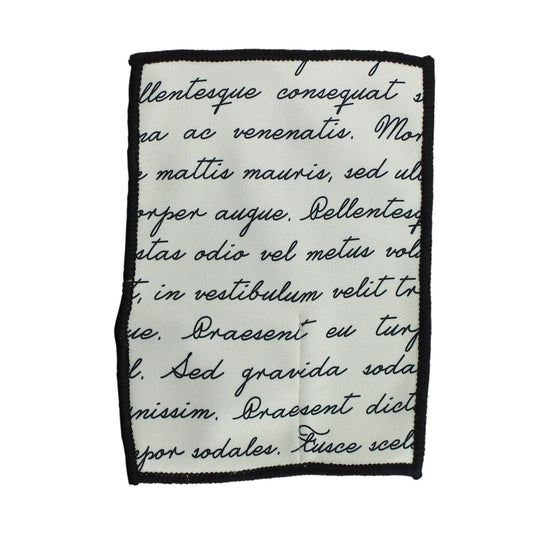 llentesque consequat s
na ac venenatis. Mor
mattis mauris, sed ull
orper augue. Pellentesq
stas odio vel metus volu
t, in vestibulum velit tr
ue. Praesent eu turp
l. Sed gravida soda
nissim. Praesent dict
mpor sodales. Fusce scel